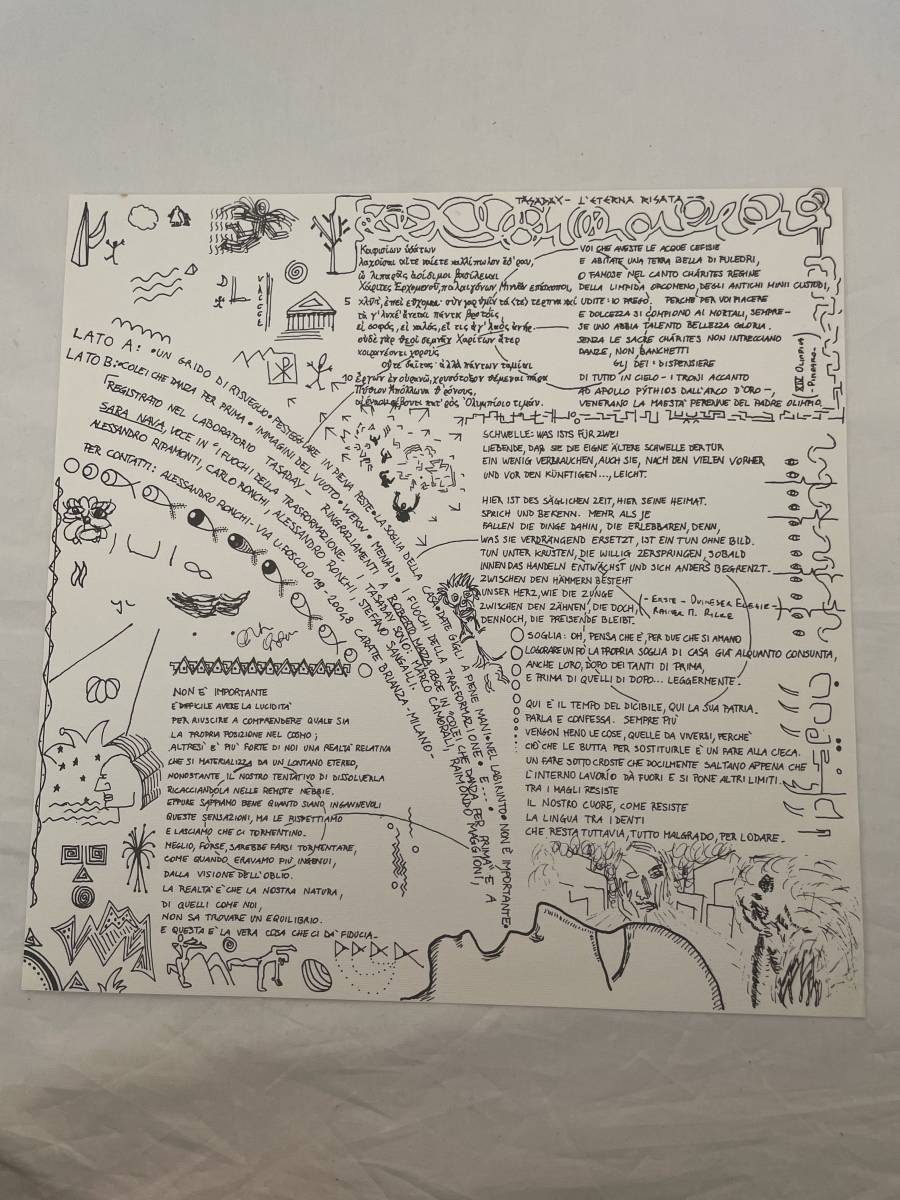 TASADAY - L'ETERNA RISATA -
Καφισίων ὑδάτων
λαχοῖσαι αἵτε ναίετε καλλίπωλον ἕδραν,
ὦ λιπαρᾶς ἀοίδιμοι βασίλειαι
Χάριτες Ἐρχομενοῦ, παλαιγόνων Μινυᾶν ἐπίσκοποι,
5 κλῦτ', ἐπεὶ εὔχομαι· σὺν γὰρ ὑμῖν τά (τε) τερπνὰ καὶ
τὰ γ'λυκέ' ἄνεται πάντα βροτοῖς,
εἰ σοφός, εἰ καλός, εἴ τις ἀγ'λαὸς ἀνήρ.
οὐδὲ γὰρ θεοὶ σεμνᾶν Χαρίτων ἄτερ
κοιρανέοντι χοροὺς
οὔτε δαῖτας· ἀλλὰ πάντων ταμίαι
10 ἔργων ἐν οὐρανῷ, χρυσότοξον θέμεναι πάρα
Πύθιον Ἀπόλλωνα θρόνους,
ἀέναον σέβοντι πατ'ρὸς Ὀλυμπίοιο τιμάν.
VOI CHE AVESTE LE ACQUE CEFISIE
E ABITATE UNA TERRA BELLA DI PULEDRI,
O FAMOSE NEL CANTO CHÁRITES REGINE
DELLA LIMPIDA ORCOMENO, DEGLI ANTICHI MINII CUSTODI,
UDITE: IO PREGO. PERCHÉ PER VOI PIACERE
E DOLCEZZA SI COMPIONO AI MORTALI, SEMPRE-
SE UNO ABBIA TALENTO BELLEZZA GLORIA.
SENZA LE SACRE CHÁRITES NON INTRECCIANO
DANZE, NON BANCHETTI
GLI DEI: DISPENSIERE
DI TUTTO IN CIELO - I TRONI ACCANTO
AD APOLLO PÝTHIOS DALL'ARCO D'ORO -,
VENERANO LA MAESTA' PERENNE DEL PADRE OLIMPIO.
XIV OLIMPICA
- PINDARO -
VACCEL
LATO A: •UN GRIDO DI RISVEGLIO•PESTEGGIARE IN PIENA PESTE•LA SOGLIA DELLA CASA•DATE GIGLI A PIENE MANI•NEL LABIRINTO•NON È IMPORTANTE•
LATO B:•COLEI CHE DANZA PER PRIMA•IMMAGINI DEL VUOTO•WERDW•MENADI•I FUOCHI DELLA TRASFORMAZIONE• E...•
REGISTRATO NEL LABORATORIO TASADAY - RINGRAZIAMENTI A ROBERTO MAZZA OBOE IN "COLEI CHE DANZA PER PRIMA" E A
SARA NAVA, VOCE IN "I FUOCHI DELLA TRASFORMAZIONE. I TASADAY SONO: MARCO CAMORALI, RAIMONDO MAGGIONI,
ALESSANDRO RIPAMONTI, CARLO RONCHI, ALESSANDRO RONCHI, STEFANO SANGALLI.
PER CONTATTI: ALESSANDRO RONCHI - VIA U. FOSCOLO 19 - 20048 CARATE BRIANZA - MILANO -
SCHWELLE: WAS ISTS FÜR ZWEI
LIEBENDE, DAß SIE DIE EIGNE ÄLTERE SCHWELLE DER TÜR
EIN WENIG VERBRAUCHEN, AUCH SIE, NACH DEN VIELEN VORHER
UND VOR DEN KÜNFTIGEN..., LEICHT.
HIER IST DES SÄGLICHEN ZEIT, HIER SEINE HEIMAT.
SPRICH UND BEKENN. MEHR ALS JE
FALLEN DIE DINGE DAHIN, DIE ERLEBBAREN, DENN,
WAS SIE VERDRÄNGEND ERSETZT, IST EIN TUN OHNE BILD.
TUN UNTER KRUSTEN, DIE WILLIG ZERSPRINGEN, SOBALD
INNEN DAS HANDELN ENTWÄCHST UND SICH ANDERS BEGRENZT.
ZWISCHEN DEN HÄMMERN BESTEHT
UNSER HERZ, WIE DIE ZUNGE
ZWISCHEN DEN ZÄHNEN, DIE DOCH,
DENNOCH, DIE PREISENDE BLEIBT.
- ERSTE - DUINESER ELEGIE -
RAINER M. RILKE
SOGLIA: OH, PENSA CHE È, PER DUE CHE SI AMANO
LOGORARE UN PO' LA PROPRIA SOGLIA DI CASA GIA' ALQUANTO CONSUNTA,
ANCHE LORO, DOPO DEI TANTI DI PRIMA,
E PRIMA DI QUELLI DI DOPO... LEGGERMENTE.
QUI È IL TEMPO DEL DICIBILE, QUI LA SUA PATRIA.
PARLA E CONFESSA. SEMPRE PIÙ
VENGON MENO LE COSE, QUELLE DA VIVERSI, PERCHE'
CIÒ CHE LE BUTTA PER SOSTITUIRLE È UN FARE ALLA CIECA.
UN FARE SOTTO CROSTE CHE DOCILMENTE SALTANO APPENA CHE
L'INTERNO LAVORÍO DÀ FUORI E SI PONE ALTRI LIMITI.
TRA I MAGLI RESISTE
IL NOSTRO CUORE, COME RESISTE
LA LINGUA TRA I DENTI
CHE RESTA TUTTAVIA, TUTTO MALGRADO, PER LODARE.
NON E' IMPORTANTE
E' DIFFICILE AVERE LA LUCIDITA'
PER RIUSCIRE A COMPRENDERE QUALE SIA
LA PROPRIA POSIZIONE NEL COSMO;
ALTRESI' E' PIU' FORTE DI NOI UNA REALTA' RELATIVA
CHE SI MATERIALIZZA DA UN LONTANO ETEREO,
NONOSTANTE IL NOSTRO TENTATIVO DI DISSOLVERLA
RICACCIANDOLA NELLE REMOTE NEBBIE.
EPPURE SAPPIAMO BENE QUANTO SIANO INGANNEVOLI
QUESTE SENSAZIONI, MA LE RISPETTIAMO
E LASCIAMO CHE CI TORMENTINO.
MEGLIO, FORSE, SAREBBE FARSI TORMENTARE,
COME QUANDO ERAVAMO PIU' INGENUI,
DALLA VISIONE DELL'OBLIO.
LA REALTA' E' CHE LA NOSTRA NATURA,
DI QUELLI COME NOI,
NON SA TROVARE UN EQUILIBRIO.
E QUESTA E' LA VERA COSA CHE CI DA' FIDUCIA.